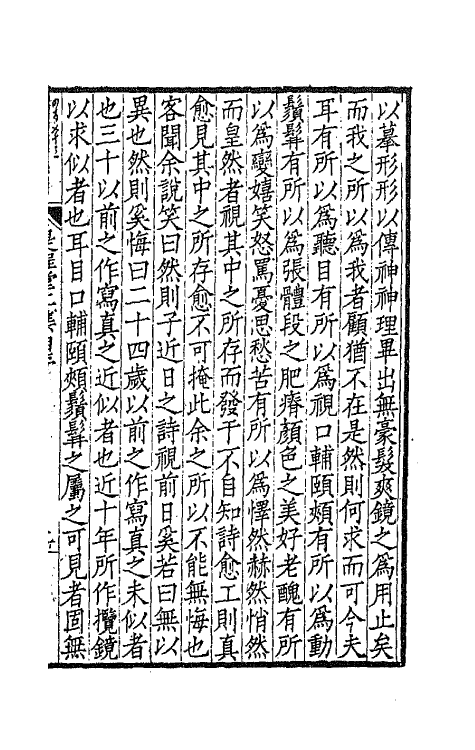 以摹形形以傳神神理畢出無豪髮爽鏡之為用止矣
而我之所以為我者顧猶不在是然則何求而可今夫
耳有所以為聽目有所以為視口輔頤頰有所以為動
鬚髯有所以為張體段之肥瘠顔色之美好老醜有所
以為孌嬉笑怒罵憂思愁苦有所以為懌然赫然悄然
而皇然者視其中之所存而發于不自知詩愈工則真
愈見其中之所存愈不可掩此余之所以不能無悔也
客聞余說笑曰然則子近日之詩視前日奚若曰無以
異也然則奚悔曰二十四歲以前之作寫真之未似者
也三十以前之作寫真之近似者也近十年所作攬鏡
以求似者也耳目口輔頤頰鬚髯之屬之可見者固無